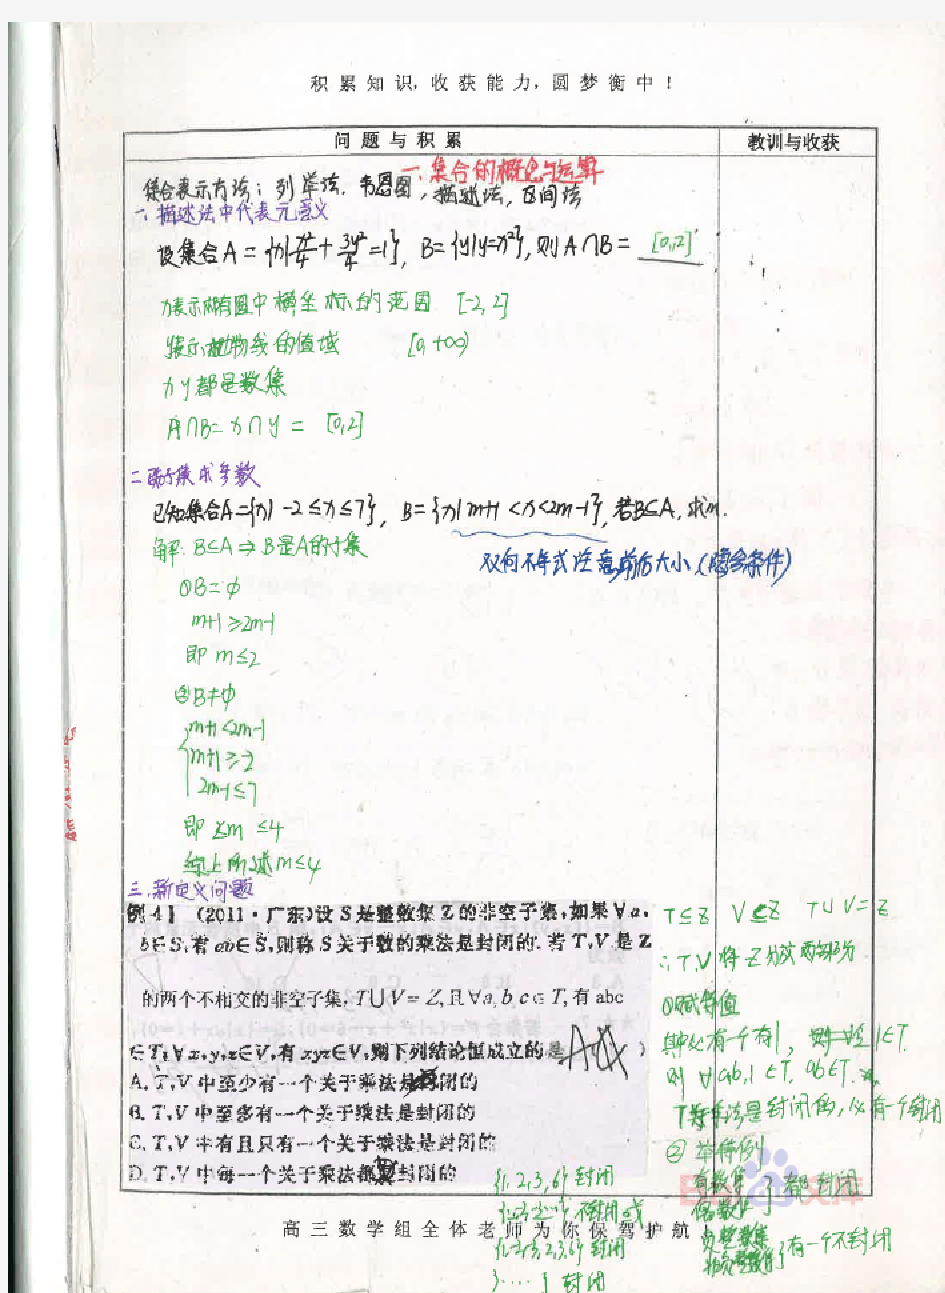 积累知识,收获能力,圆梦衡中!
问题与积累
教训与收获
一.集合的概念与运算
集合表示方法:列举法.韦恩图,描述法,区间法
一、描述法中代表元意义
设集合A={x|x²/4+3y²/4=1},B={y|y=x²},则A∩B=[0,2]
x表示椭圆中横坐标的范围 [-2,2]
y表示抛物线的值域 [0,+∞)
x y都是数集
A∩B=x∩y=[0,2]
二 子集求参数
已知集合A={x|-2≤x≤7},B={x|m+1<x<2m-1},若B⊆A,求m.
解:B⊆A⇒B是A的子集
双向不等式注意前后大小(隐含条件)
①B=∅
m+1≥2m-1
即 m≤2
②B≠∅
m+1<2m-1
m+1≥-2
2m-1≤7
即 2<m≤4
综上所述m≤4
三.新定义问题
例4】 (2011·广东)设S是整数集Z的非空子集,如果∀a,
b∈S,有ab∈S,则称S关于数的乘法是封闭的.若T,V是Z
的两个不相交的非空子集,T⋃V=Z,且∀a,b,c∈T,有abc
∈T;∀x,y,z∈V,有xyz∈V,则下列结论恒成立的是 A )
A.T,V中至少有一个关于乘法是封闭的
B.T,V中至多有一个关于乘法是封闭的
C.T,V中有且只有一个关于乘法是封闭的
D.T,V中每一个关于乘法都是封闭的
T⊆Z V⊆Z T∪V=Z
∴T,V将Z分成两部分
①赋特值
其中必有一个有1, 1∈T.
则∀ab,1∈T.ab∈T.
T对乘法是封闭的,必有一个封闭
②举特例
奇数集
偶数集
}都封闭
负整数集
非负整数集
}有一个不封闭
{1,2,3,6}封闭
不封闭
封闭
}封闭
高三数学组全体老师为你保驾护航!
文库